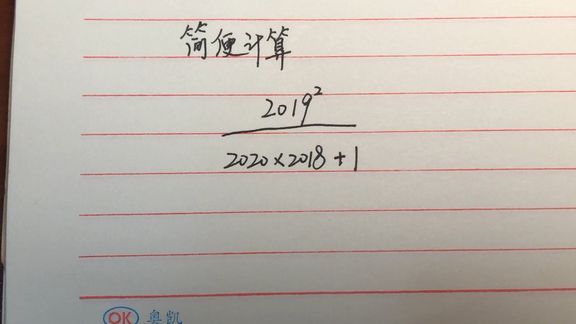 简便计算
2019²
2020×2018+1
OK 奥凯